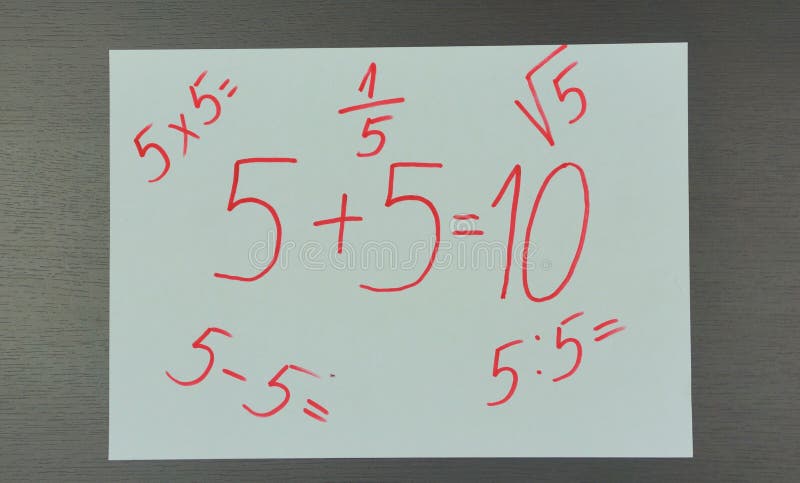 5×5=
1/5
√5
5+5=10
5-5=
5:5=
dreamstime